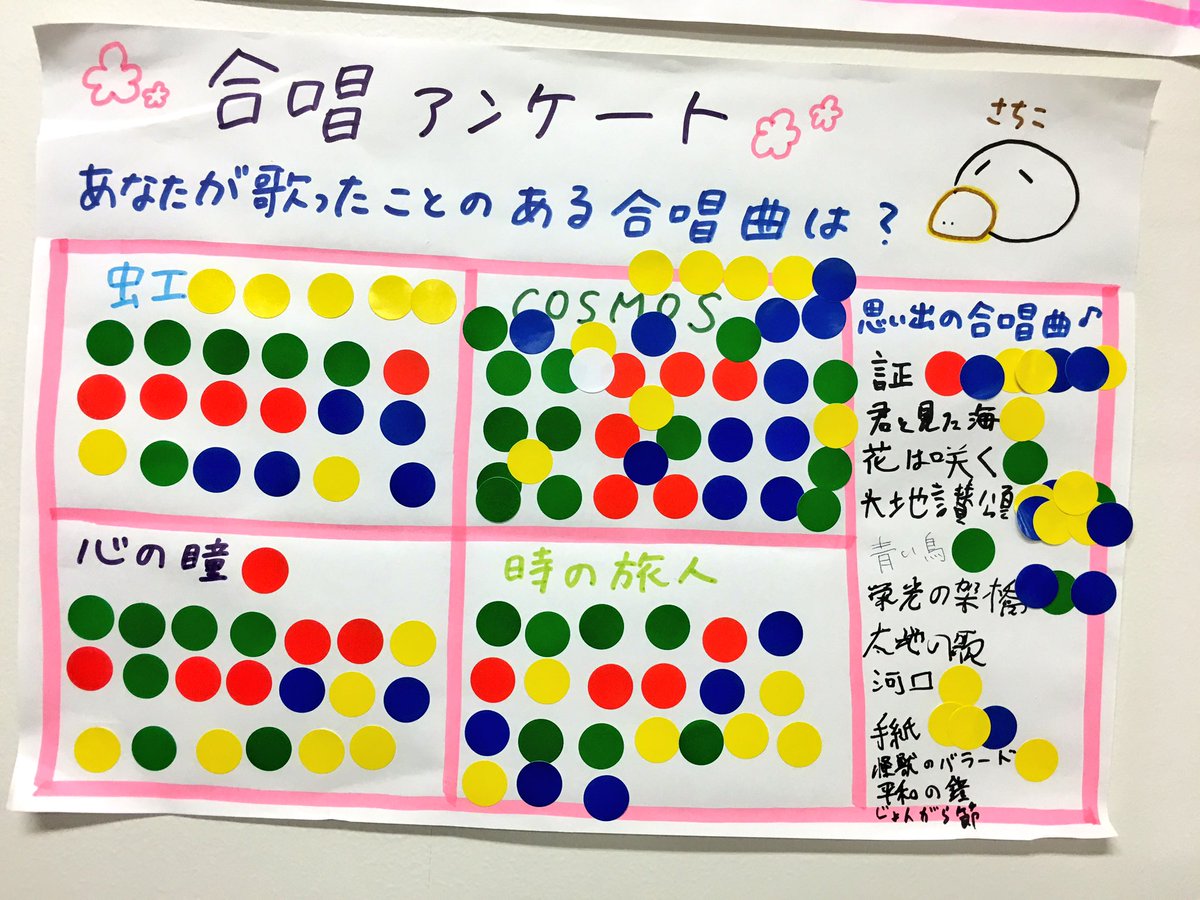 合唱アンケート
さちこ
あなたが歌ったことのある合唱曲は?
虹
COSMOS
心の瞳
時の旅人
思い出の合唱曲♪
証
君と見た海
花は咲く
大地讃頌
青い鳥
栄光の架橋
大地の歌
河口
手紙
怪獣のバラード
平和の鐘
じょんがら節